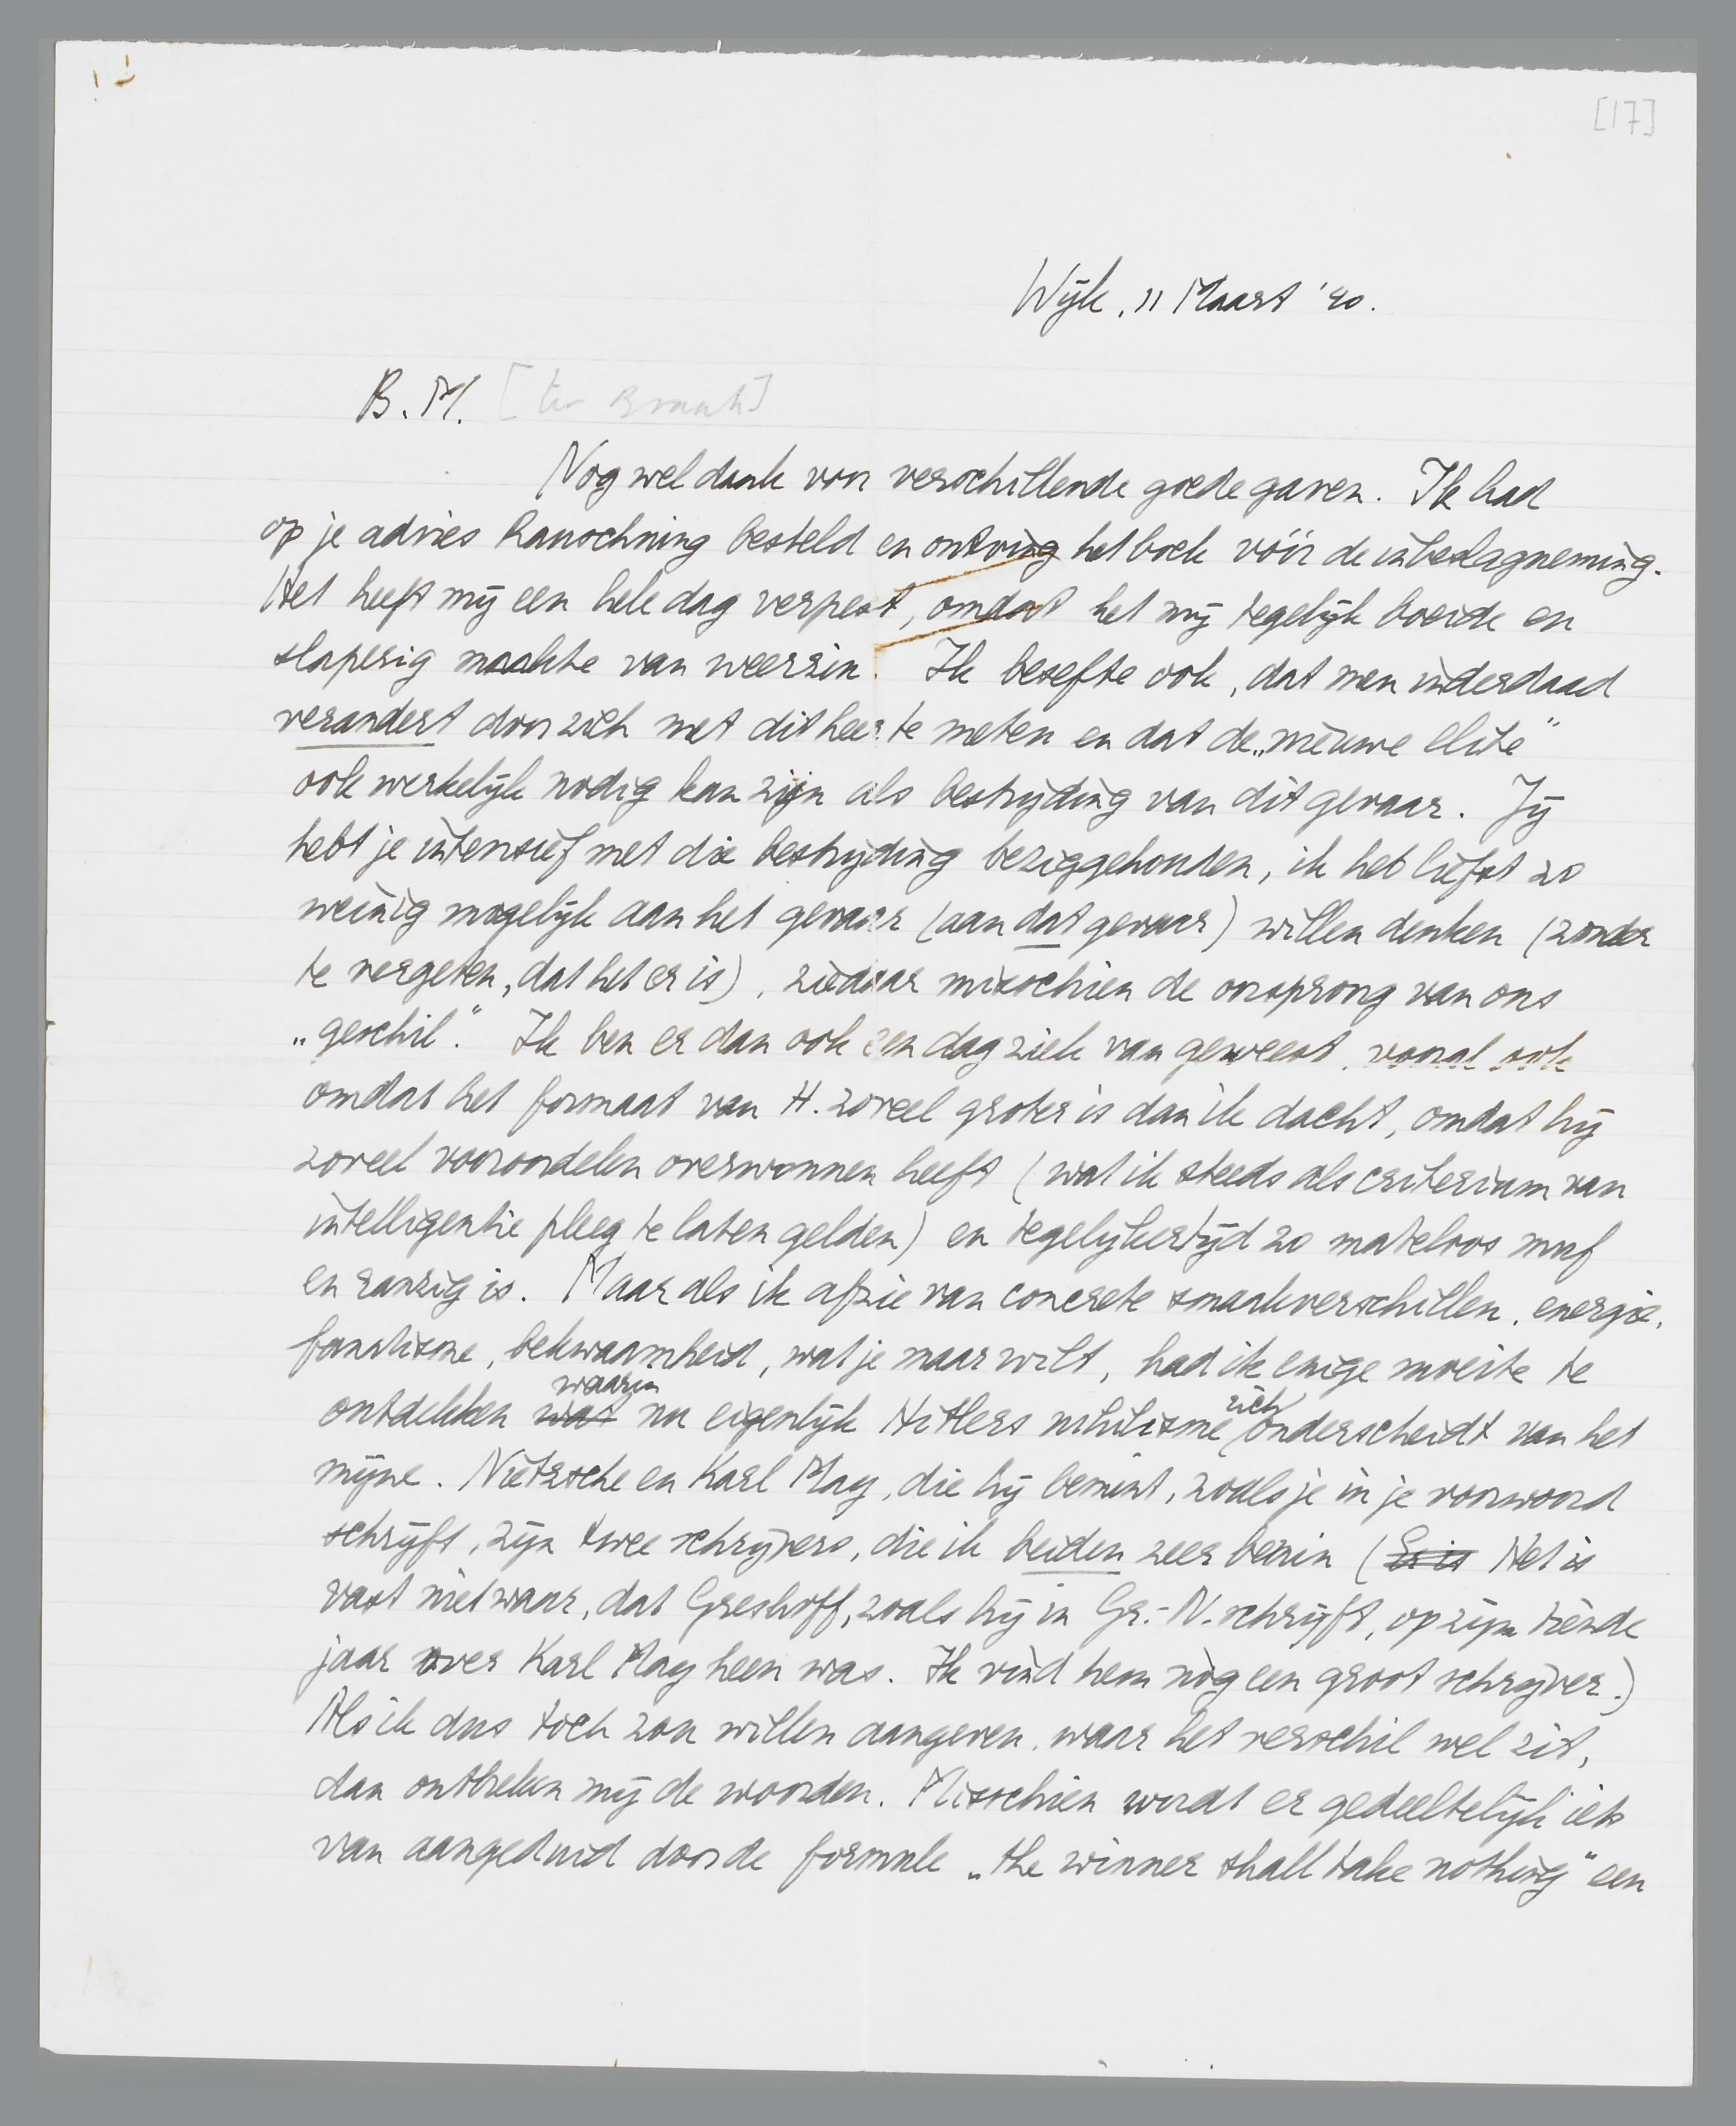 [17]
Wijk, 11 Maart '40.
B.M. [ter Braak]
Nog wel dank voor verschillende goede gaven. Ik had
op je advies Rauschning besteld en ontving het boek vóór de inbeslagneming.
Het heeft mij een hele dag verpest, omdat het mij tegelijk boeide en
slaperig maakte van weerzin. Ik besefte ook, dat men inderdaad
verandert door zich met dit heer te meten en dat de „nieuwe elite”
ook werkelijk nodig kan zijn als bestrijding van dit gevaar. Jij
hebt je intensief met die bestrijding beziggehouden, ik heb liefst zo
weinig mogelijk aan het gevaar (aan dat gevaar) willen denken (zonder
te vergeten, dat het er is), ziedaar misschien de oorsprong van ons
„geschil”. Ik ben er dan ook een dag ziek van geweest, vooral ook
omdat het formaat van H. zoveel groter is dan ik dacht, omdat hij
zoveel vooroordelen overwonnen heeft (wat ik steeds als criterium van
intelligentie pleeg te laten gelden) en tegelijkertijd zo mateloos muf
en ranzig is. Maar als ik afzie van concrete smaakverschillen, energie,
fanatisme, bekwaamheid, wat je maar wilt, had ik enige moeite te
ontdekken wat waarin nu eigenlijk Hitlers nihilisme zich onderscheidt van het
mijne. Nietzsche en Karl May, die hij bemint, zoals je in je voorwoord
schrijft, zijn twee schrijvers, die ik beiden zeer bemin (Er is Het is
vast niet waar, dat Greshoff, zoals hij in Gr.-N. schrijft, op zijn tiende
jaar over Karl May heen was. Ik vind hem nòg een groot schrijver.)
Als ik dus toch zou willen aangeven, waar het verschil wel zit,
dan ontbreken mij de woorden. Misschien wordt er gedeeltelijk iets
van aangeduid door de formule „the winner shall take nothing” een